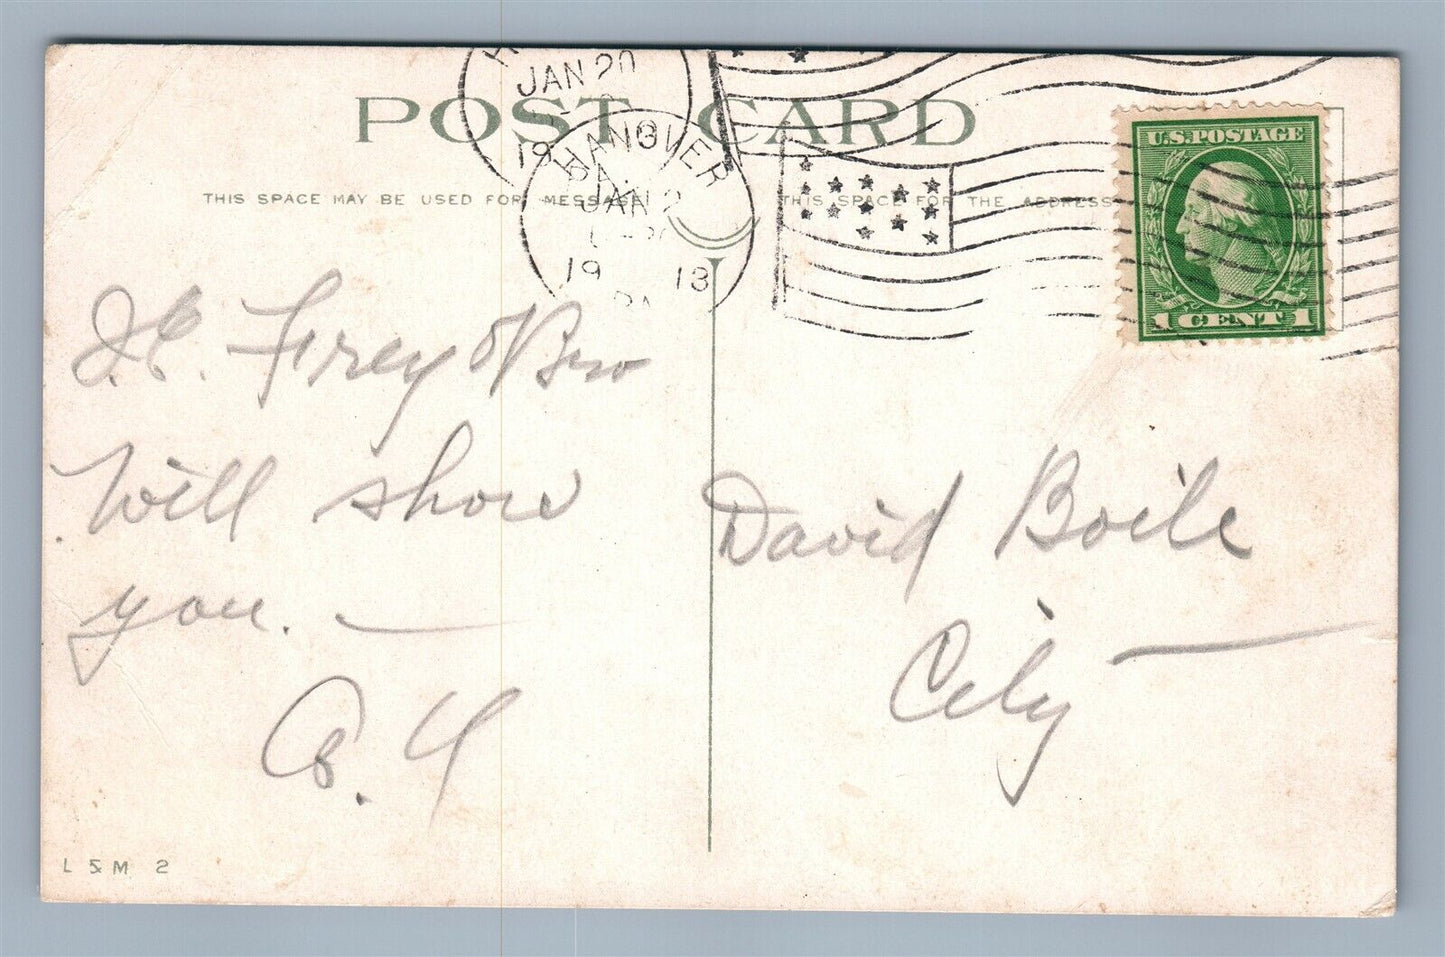 POST CARD
THIS SPACE MAY BE USED FOR MESSAGE
THIS SPACE FOR THE ADDRESS
JAN 20
19
HANOVER
PA.
JAN 2
19 13
U.S. POSTAGE
1 CENT 1
J. E. Firey & Bro
will show
you. —
David Boile
City —
L & M 2